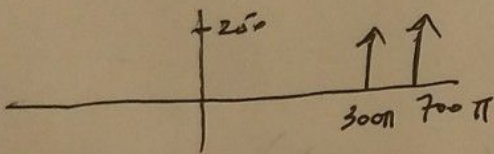 250
300π 700π